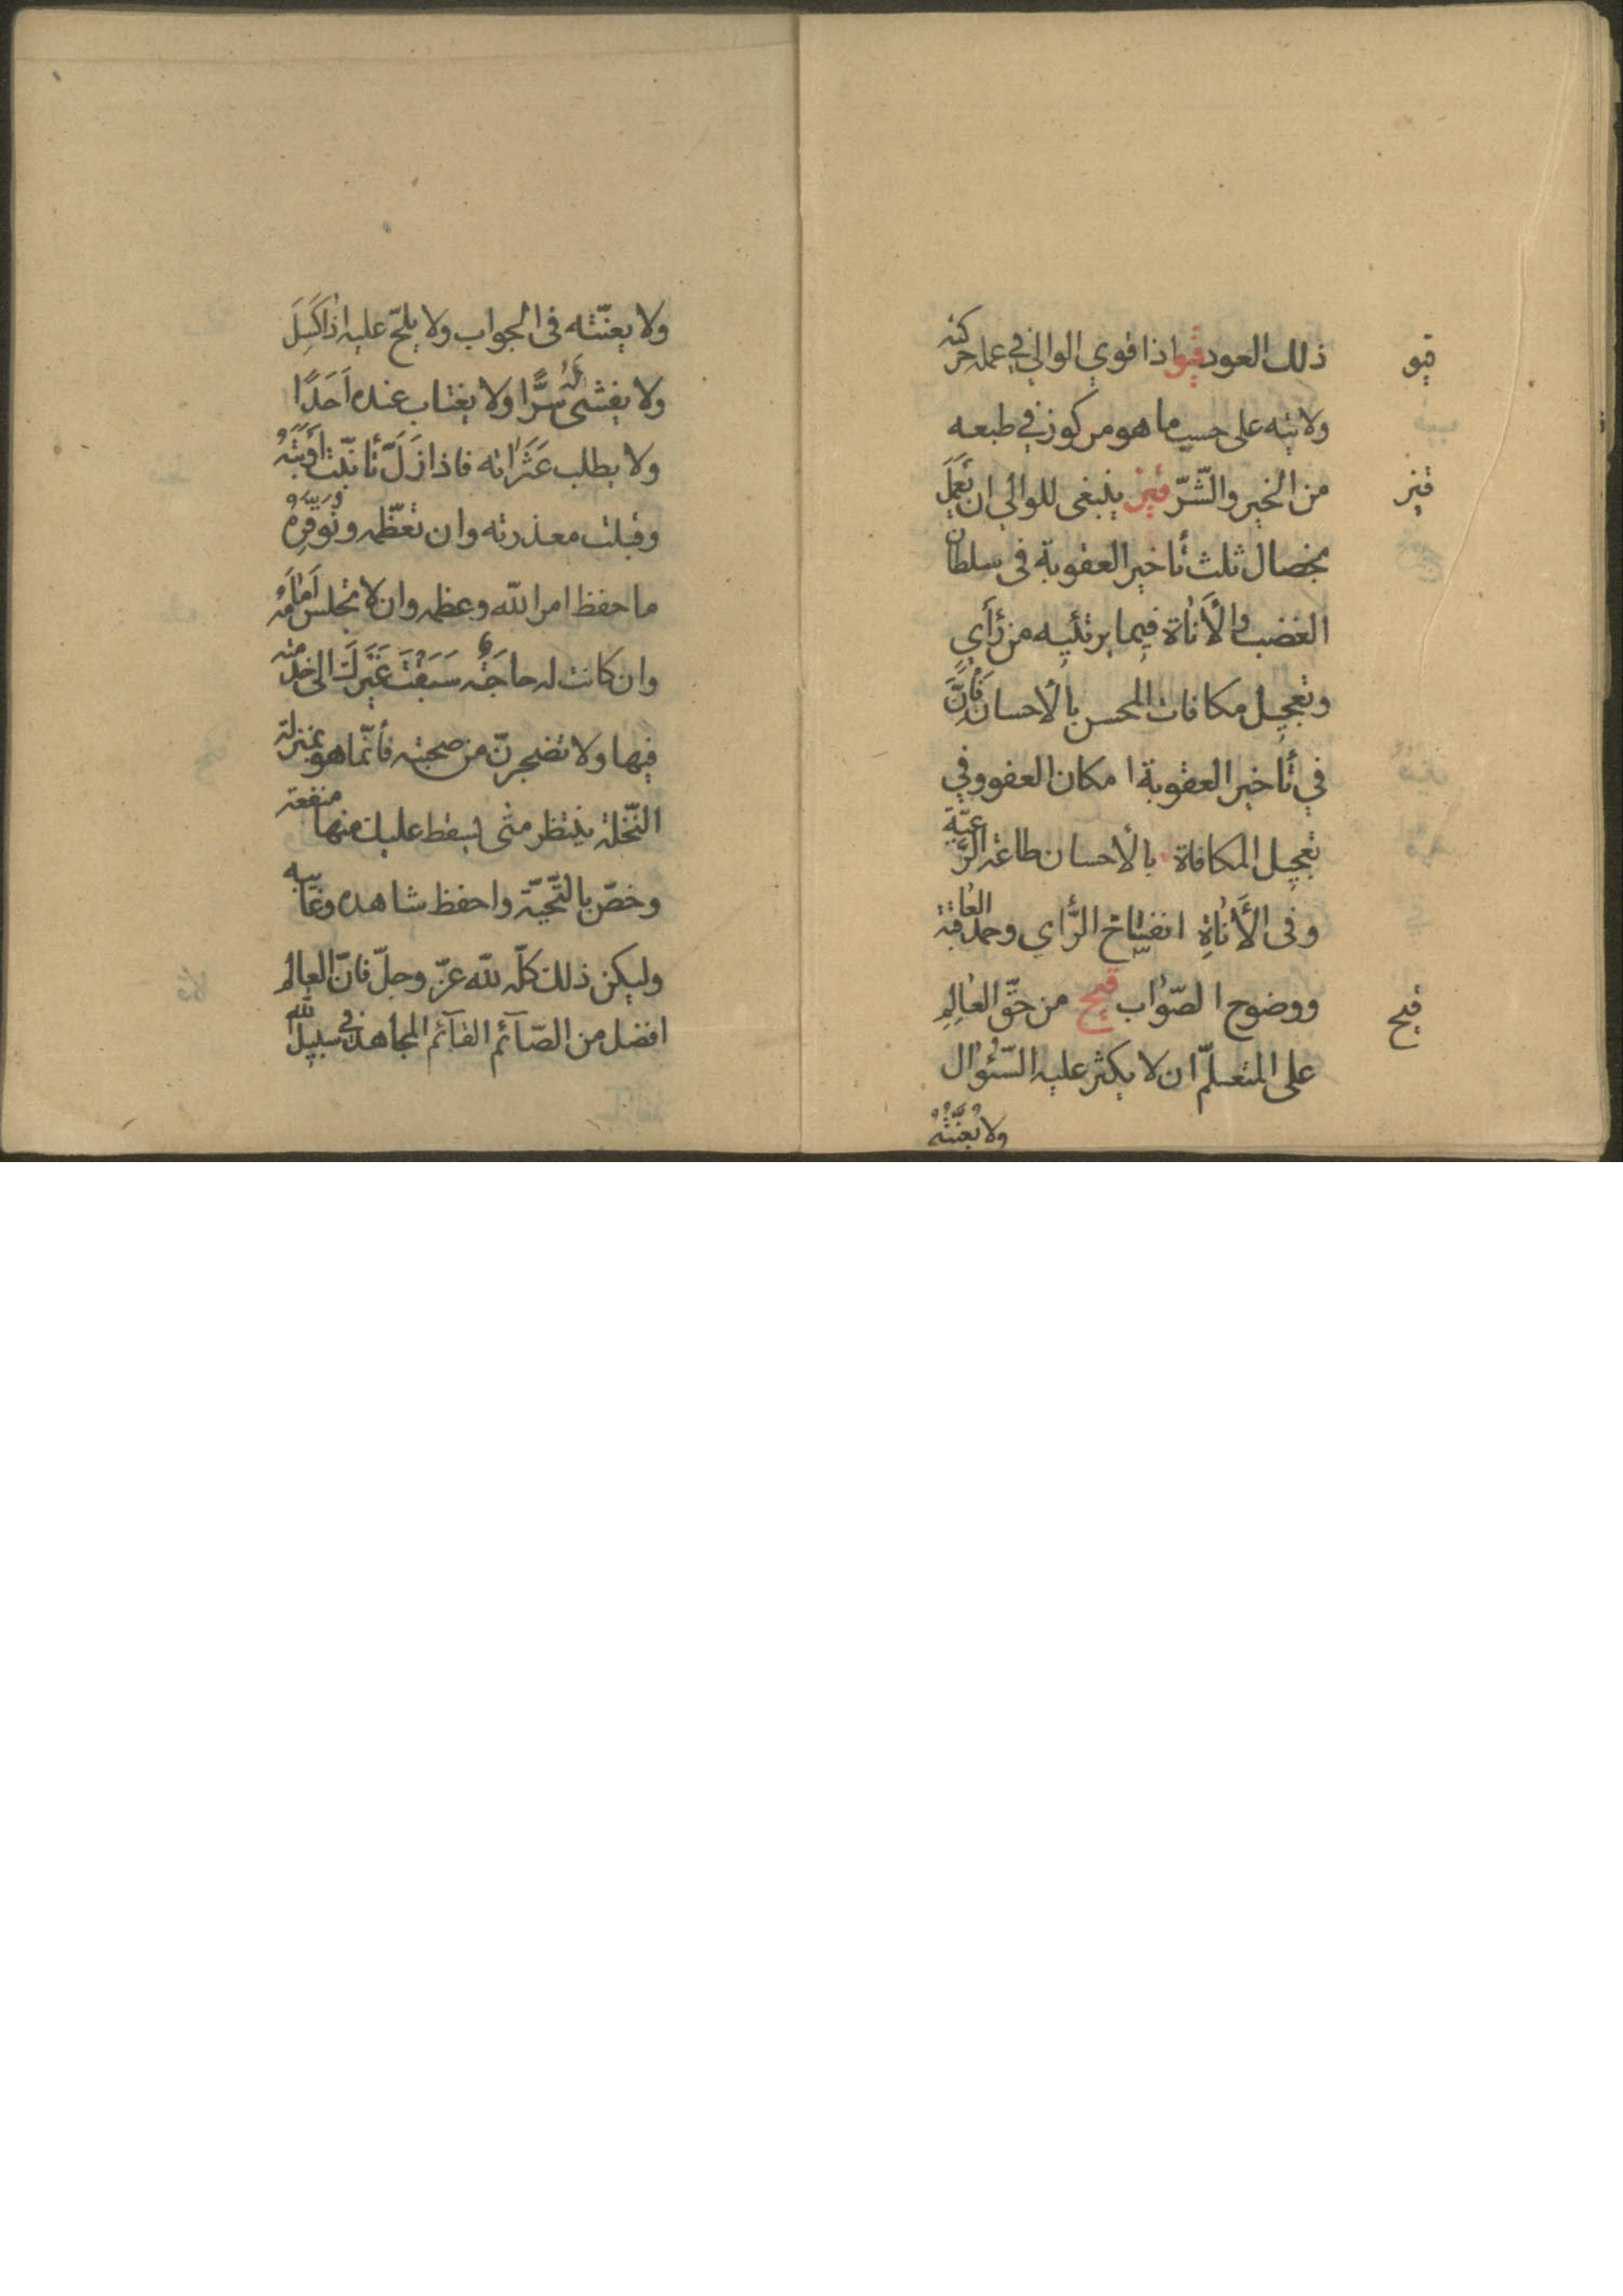 ذلك العود قيو اذا قوي الوالي في عمله حركته
قيو
ولايته على حسب ما هو مركوز في طبعه
من الخير والشّرّ قيز ينبغى للوالي ان يَعمَلَ
قيز
بخصال ثلث تأخير العقوبة فى سلطان
الغضب والأَناة فيما يرتئيه من رَأي
وتعجيل مكافات المحسن بالأحسان فَاِنَّ
في تأخير العقوبة امكان العفو وفي
تعجيل المكافاة بالأحسان طاعة الرَّعيّة
وفى الأَناةِ انفساخ الرَّاي وحمد العاقبة
ووضوح الصّواب قيح من حقّ العٰالِمِ
قيح
على المتعلّم ان لا يكثر عليه السّئوال
ولا يُعَنِّتُهُ
ولا يعنّته فى الجواب ولا يلحّ عليه اذا كَسِلَ
ولا يفشى لَهُ سرًّا ولا يغتاب عنده اَحَدًا
ولا يطلب عَثَراته فاذا زَلَّ تأنّيت اَوبَتَهُ
وقبلت معذرته وان تعظّمه وتُوَقِّرَهُ
ما حفظ امر الله وعظمه وان لا تجلس اَمٰامَهُ
وان كانت له حاجَة سَبَقْتَ غَيْرَكَ الى خدمته
فيها ولا تضجرنّ من صحبته فأنّما هو بمنزلة
النّخلة ينتظر متى يسقط عليك منها منفعة
وخصّ بالتّحيّة واحفظ شاهده وغائبه
وليكن ذلك كلّه لله عزّ وجلّ فانّ العالم
افضل من الصّآئم القآئم المجاهد في سبيل الله